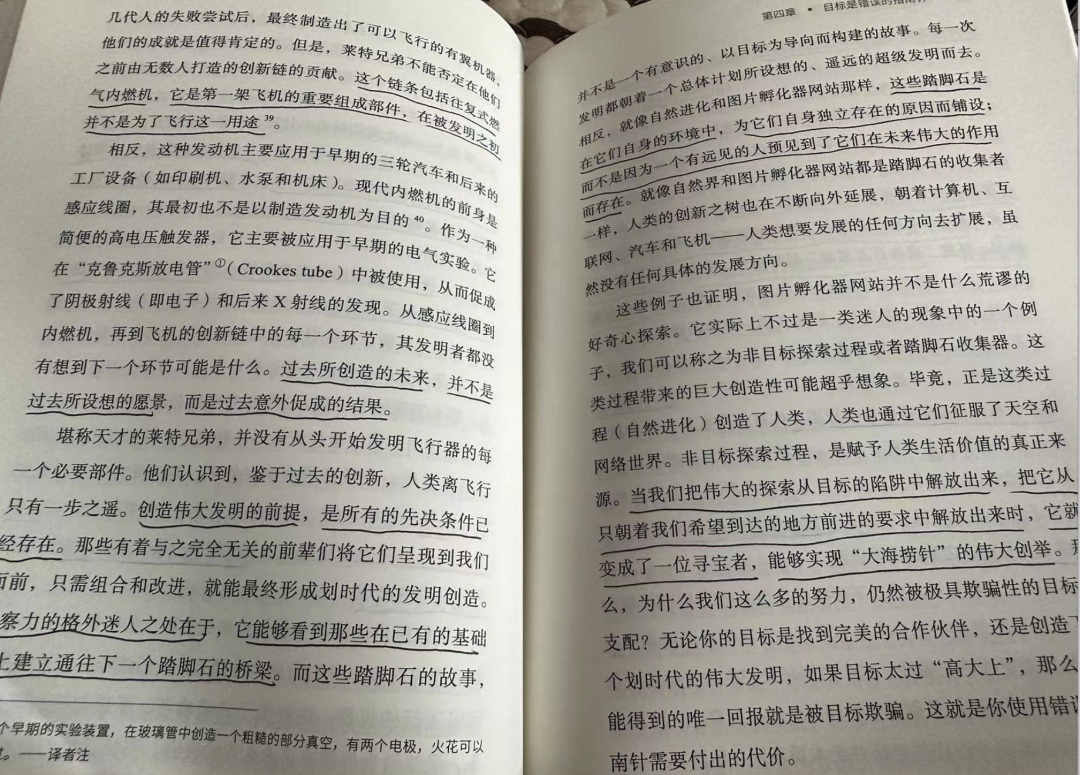 几代人的失败尝试后，最终制造出了可以飞行的有翼机器，
他们的成就是值得肯定的。但是，莱特兄弟不能否定在他们
之前由无数人打造的创新链的贡献。这个链条包括往复式燃
气内燃机，它是第一架飞机的重要组成部件，在被发明之初
并不是为了飞行这一用途39。
相反，这种发动机主要应用于早期的三轮汽车和后来的
工厂设备（如印刷机、水泵和机床）。现代内燃机的前身是
感应线圈，其最初也不是以制造发动机为目的40。作为一种
简便的高电压触发器，它主要被应用于早期的电气实验。它
在“克鲁克斯放电管”①（Crookes tube）中被使用，从而促成
了阴极射线（即电子）和后来 X 射线的发现。从感应线圈到
内燃机，再到飞机的创新链中的每一个环节，其发明者都没
有想到下一个环节可能是什么。过去所创造的未来，并不是
过去所设想的愿景，而是过去意外促成的结果。
堪称天才的莱特兄弟，并没有从头开始发明飞行器的每
一个必要部件。他们认识到，鉴于过去的创新，人类离飞行
只有一步之遥。创造伟大发明的前提，是所有的先决条件已
经存在。那些有着与之完全无关的前辈们将它们呈现到我们
面前，只需组合和改进，就能最终形成划时代的发明创造。
察力的格外迷人之处在于，它能够看到那些在已有的基础
上建立通往下一个踏脚石的桥梁。而这些踏脚石的故事，
个早期的实验装置，在玻璃管中创造一个粗糙的部分真空，有两个电极，火花可以
。——译者注
第四章 · 目标是错误的指南针
并不是一个有意识的、以目标为导向而构建的故事。每一次
发明都朝着一个总体计划所设想的、遥远的超级发明而去。
相反，就像自然进化和图片孵化器网站那样，这些踏脚石是
在它们自身的环境中，为它们自身独立存在的原因而铺设；
而不是因为一个有远见的人预见到了它们在未来伟大的作用
而存在。就像自然界和图片孵化器网站都是踏脚石的收集者
一样，人类的创新之树也在不断向外延展，朝着计算机、互
联网、汽车和飞机——人类想要发展的任何方向去扩展，虽
然没有任何具体的发展方向。
这些例子也证明，图片孵化器网站并不是什么荒谬的
好奇心探索。它实际上不过是一类迷人的现象中的一个例
子，我们可以称之为非目标探索过程或者踏脚石收集器。这
类过程带来的巨大创造性可能超乎想象。毕竟，正是这类过
程（自然进化）创造了人类，人类也通过它们征服了天空和
网络世界。非目标探索过程，是赋予人类生活价值的真正来
源。当我们把伟大的探索从目标的陷阱中解放出来，把它从
只朝着我们希望到达的地方前进的要求中解放出来时，它就
变成了一位寻宝者，能够实现“大海捞针”的伟大创举。那
么，为什么我们这么多的努力，仍然被极具欺骗性的目标
支配？无论你的目标是找到完美的合作伙伴，还是创造
个划时代的伟大发明，如果目标太过“高大上”，那么
能得到的唯一回报就是被目标欺骗。这就是你使用错误
南针需要付出的代价。